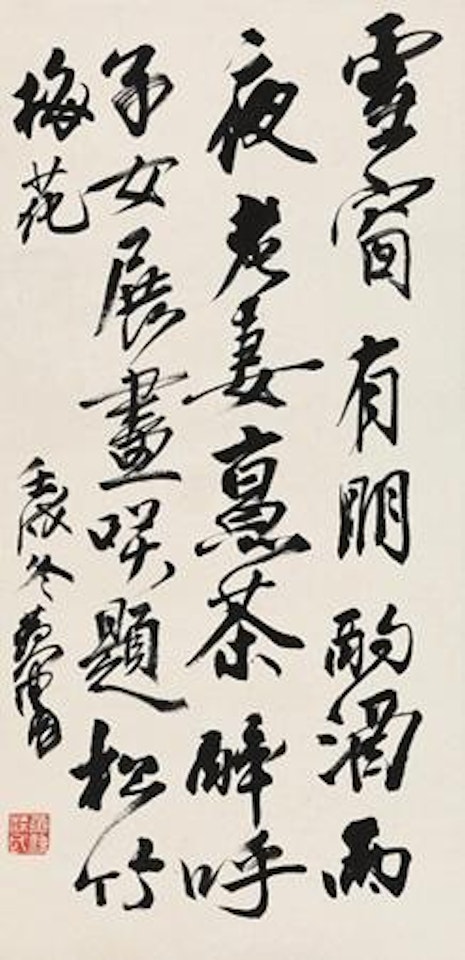 雪窗有朋酌酒雨
夜老妻烹茶醉呼
子女展畫咲題松竹
梅花
壬戌冬